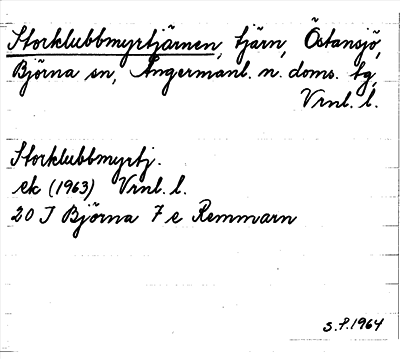 Storklubbmyrtjärnen, tjärn, Östansjö,
Björna sn, Ångermanl. n. doms. tg,
Vrnl. l.
Storklubbmyrtj.
ek (1963) Vrnl. l.
20 J Björna 7 e Remmarn
S.P. 1964